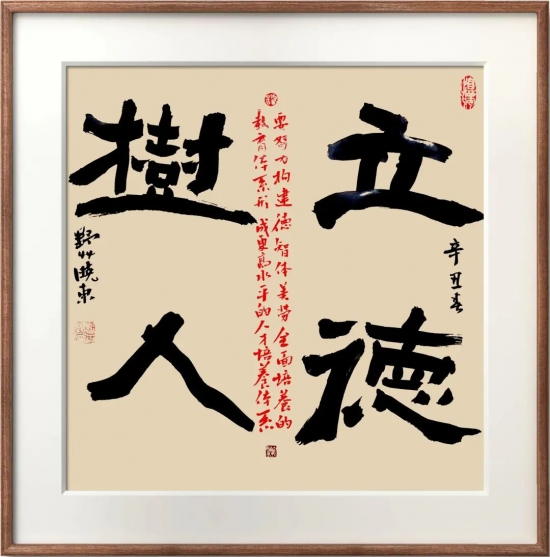 立德
辛丑春
要努力构建德智体美劳全面培養的
教育体系形成更高水平的人才培養体系
樹人
艸曉東